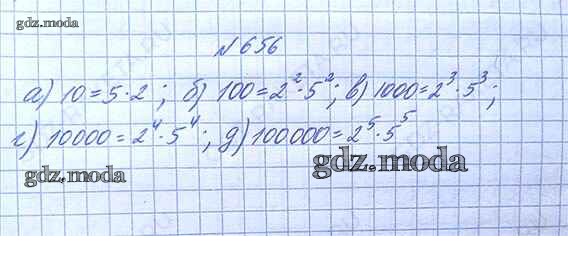 gdz.moda
№ 656
а) 10 = 5 · 2 ; б) 100 = 2² · 5² ; в) 1000 = 2³ · 5³ ;
г) 10000 = 2⁴ · 5⁴ ; д) 100000 = 2⁵ · 5⁵
gdz.moda gdz.moda
gdz.moda